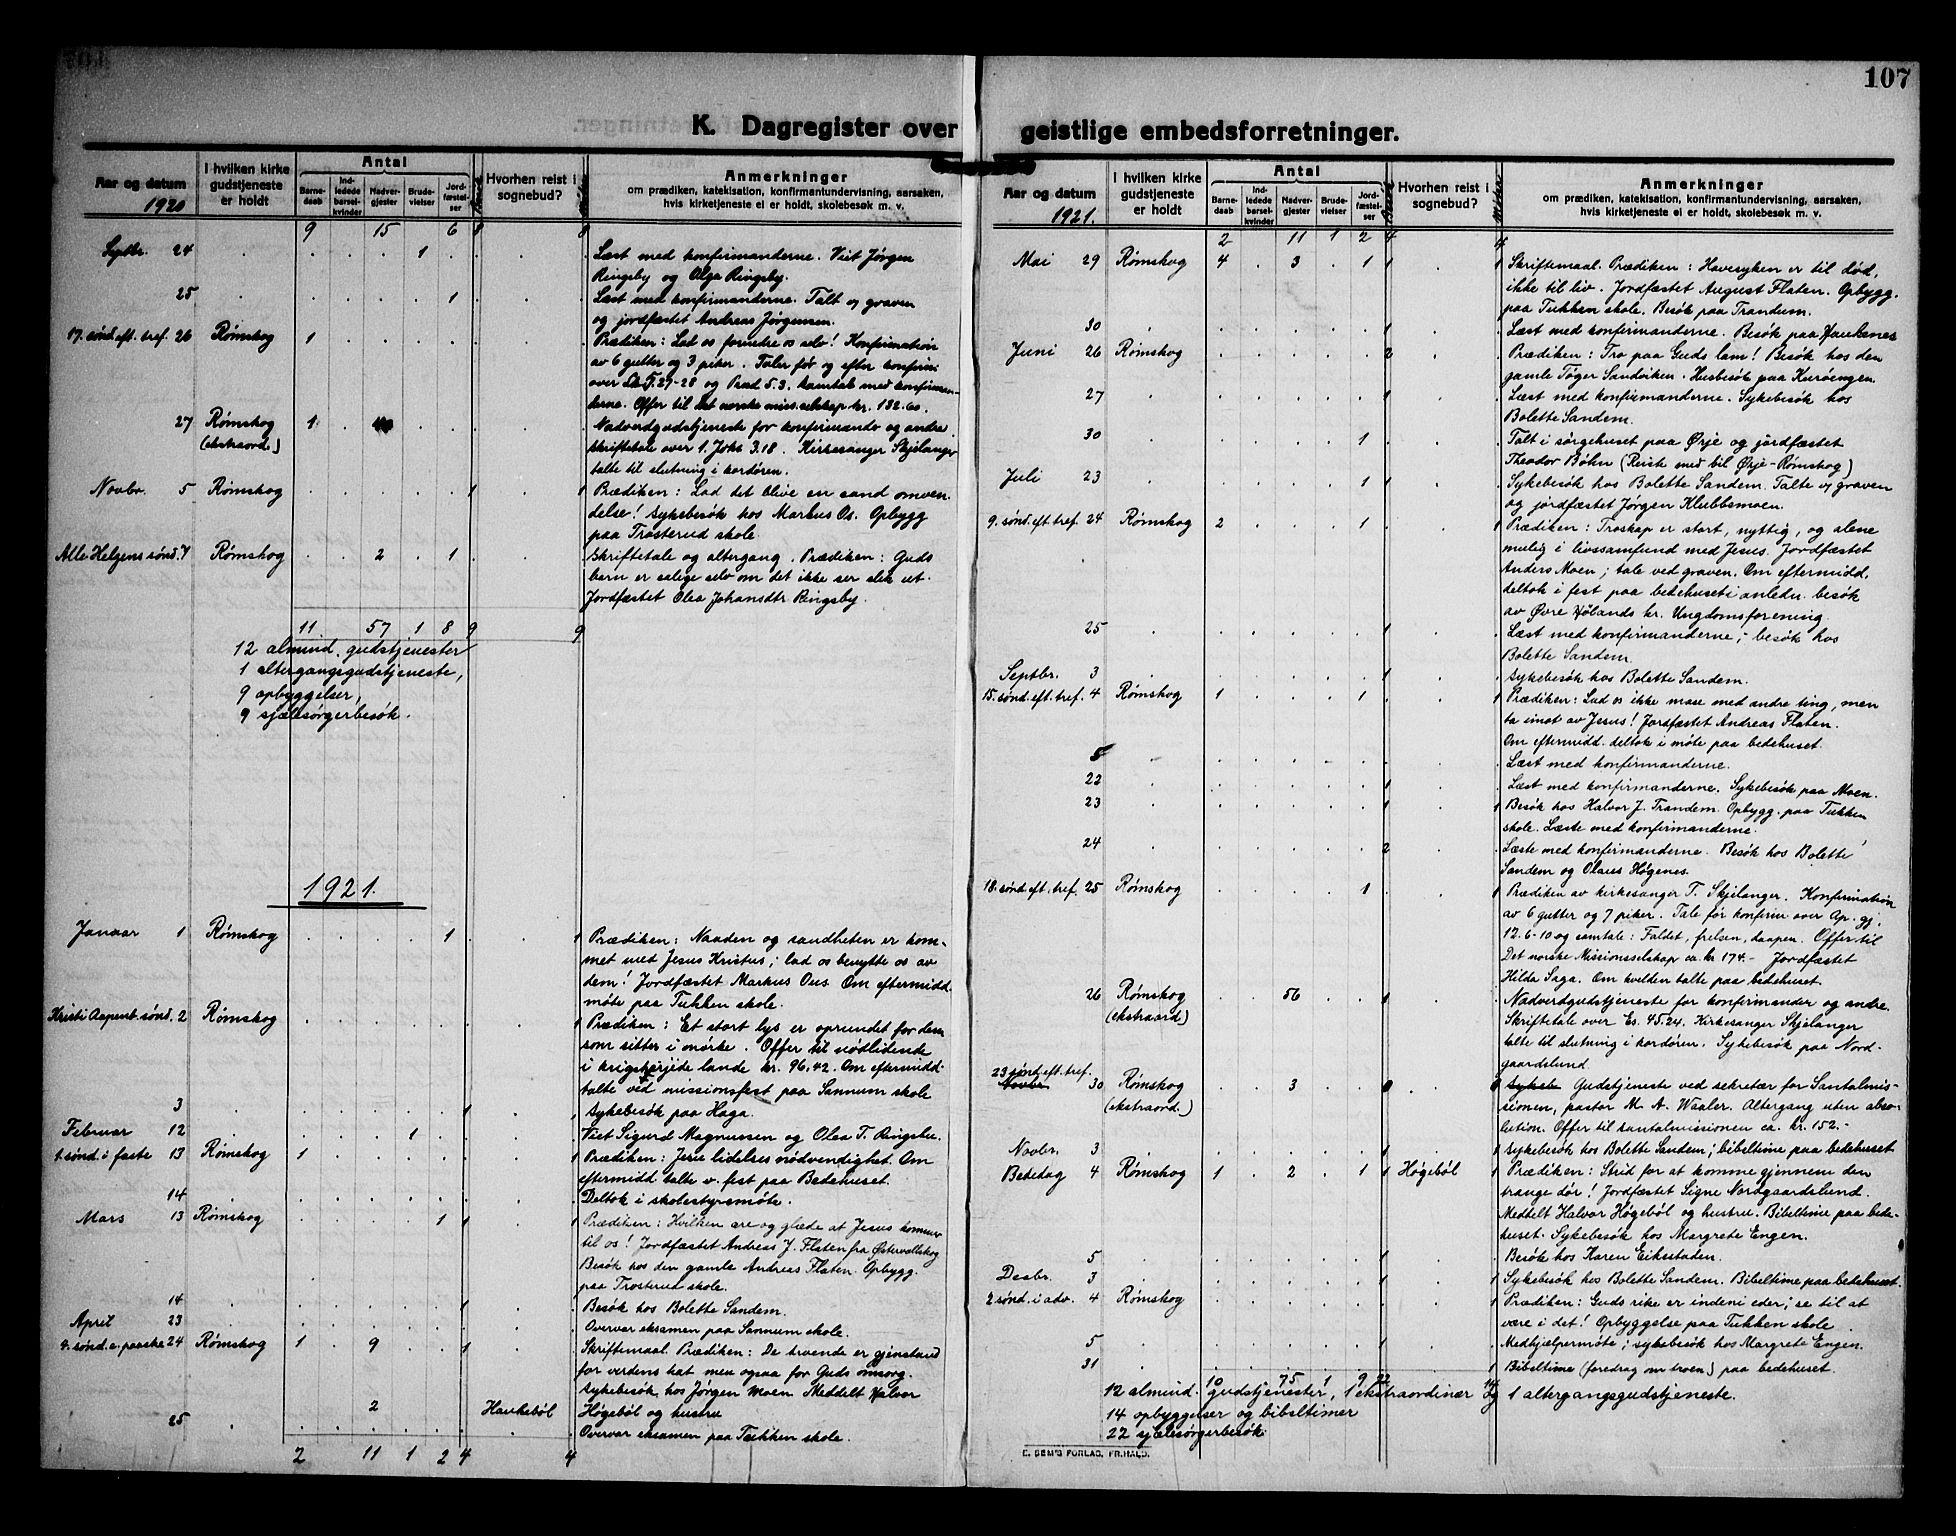 107
K. Dagregister over geistlige embedsforretninger.
Aar og datum
1920
I hvilken kirke gudstjeneste er holdt
Antal
Barnedaab
Indledede barselkvinder
Nadvergjester
Brudevielser
Jordfæstelser
Hvorhen reist i sognebud?
Anmerkninger
om prædiken, katekisation, konfirmantundervisning, aarsaken,
hvis kirketjeneste ei er holdt, skolebesøk m. v.
9 15 6 8 8
Septbr. 24 1 Læst med konfirmanderne. Viet Jørgen
Ringsby og Olga Ringsby.
25 1 Læst med konfirmanderne. Talt v/ graven
og jordfæstet Andreas Jørgensen.
17. sønd. eft. tref. 26 Rømskog 1 Prædiken: Lad os fornedre os selv! Konfirmation
av 6 gutter og 3 piker. Taler før og efter konfirm.
over 27-28 og Præd. 5.3. Samtale med konfirman-
derne. Offer til Det norske miss.selskap kr. 132.60.
27 Rømskog 1 Nadverdgudstjeneste for konfirmander og andre.
(ekstraord.) Skriftetale over 1. Joh. 3.18. Kirkesanger Skjelanger
talte til slutning i kordøren.
Novbr. 5 Rømskog 1 1 Prædiken: Lad det blive en sand omven-
delse! Sykebesøk hos Markus Os. Opbygg
paa Trosterud skole.
Alle Helgens sønd. 7 Rømskog 2 1 Skriftetale og altergang. Prædiken: Guds
barn er salige selv om det ikke ser slik ut.
Jordfæstet Olea Johansdtr. Ringsby.
11 57 1 8 9 9
12 almind. gudstjenester
1 altergangsgudstjeneste,
9 opbyggelser,
9 sjælesørgerbesøk.
1921.
Januar 1 Rømskog 1 1 Prædiken: Naaden og sandheten er kom-
met med Jesus Kristus; lad os benytte os av
dem! Jordfæstet Markus Ous. Om eftermidd.
møte paa Tukken skole.
Kristi Aapenb. sønd. 2 Rømskog 1 Prædiken: Et stort lys er oprundet for dem
som sitter i mørke. Offer til nødlidende
i krigsherjede lande kr. 96,42. Om eftermidd.
talte ved missionsfest paa Sannum skole
3 1 Sykebesøk paa Haga.
Februar 12 1 Viet Sigurd Magnussen og Olea T. Ringsby.
1. sønd. i faste 13 Rømskog 1 1 Prædiken: Jesu lidelses nødvendighet. Om
eftermidd talte v. fest paa Bedehuset.
14 Deltok i skolestyrsmøte.
Mars 13 Rømskog 1 1 1 Prædiken: Hvilken ære og glæde at Jesus kommer
til os! Jordfæstet Andreas J. Flaten fra Østervallskog
Besøk hos den gamle Andreas Flaten. Opbygg.
paa Trosterud skole.
14 1 Besøk hos Bolette Sandem.
April 23 Overvar eksamen paa Sannum skole.
4. sønd. e. paaske 24 Rømskog 1 9 1 Skriftemaal. Prædiken: De troende er gjenstand
for verdens hat men ogsaa for Guds omsorg.
Sykebesøk hos Jørgen Moen. Meddelt Halvor
2 Haukebøl Høgebøl og hustru
25 Overvar eksamen paa Tukken skole.
2 11 1 2 4 4
Aar og datum
1921.
I hvilken kirke gudstjeneste er holdt
Antal
Barnedaab
Indledede barselkvinder
Nadvergjester
Brudevielser
Jordfæstelser
Hvorhen reist i sognebud?
Møter
Anmerkninger
om prædiken, katekisation, konfirmantundervisning, aarsaken,
hvis kirketjeneste ei er holdt, skolebesøk m. v.
2 11 1 2 4 4
Mai 29 Rømskog 4 3 1 1 1 Skriftemaal. Prædiken: Havesyken er til død,
ikke til liv. Jordfæstet August Flaten. Opbygg.
paa Tukken skole. Besøk paa Trandum.
30 1 Læst med konfirmanderne. Besøk paa Haukenes
Juni 26 Rømskog 2 Prædiken: Tro paa Guds lam! Besøk hos den
gamle Tøger Sandviken. Husbesøk paa Kurøengen.
27 1 Læst med konfirmanderne. Sykebesøk hos
Bolette Sandem.
30 1 Talt i sørgehuset paa Ørje og jordfæstet
Theodor Bøhn (Reiste med bil Ørje-Rømskog)
Juli 23 1 1 Sykebesøk hos Bolette Sandem. Talte v/ graven
og jordfæstet Jørgen Klubbemoen.
9. sønd. eft. tref. 24 Rømskog 2 1 1 Prædiken: Troskap er stort, nyttig, og alene
mulig i livssamfund med Jesus. Jordfæstet
Anders Moen; tale ved graven. Om eftermidd.
deltok i fest paa bedehuset i anledn. besøk
av Øvre Hølands kr. Ungdomsforening.
25 1 Læst med konfirmanderne; besøk hos
Bolette Sandem.
Septbr. 3 1 Sykebesøk hos Bolette Sandem.
15. sønd. eft. tref. 4 Rømskog 1 1 1 Prædiken: Lad os ikke mase med andre ting, men
ta imot av Jesus! Jordfæstet Andreas Flaten.
Om eftermidd. deltok i møte paa bedehuset.
5 Læst med konfirmanderne.
22 1 Læst med konfirmanderne. Sykebesøk paa Moen.
23 1 1 Besøk hos Halvor J. Trandem. Opbygg. paa Tukken
skole. Læste med konfirmanderne.
24 2 Læste med konfirmanderne. Besøk hos Bolette
Sandem og Olaus Høgenes.
18. sønd. eft. tref. 25 Rømskog 1 1 Prædiken av kirkesanger T. Skjelanger. Konfirmation
av 6 gutter og 7 piker. Tale før konfirm over Ap. gj.
12. 6-10 og samtale: Faldet, frelsen, daapen. Offer til
Det norske Missionsselskap ca. kr 174.- Jordfæstet
Hilda Saga. Om kvelden talte paa bedehuset.
26 Rømskog 56 1 Nadverdgudstjeneste for konfirmander og andre.
(ekstraord) Skriftetale over Es. 45.24. Kirkesanger Skjelanger
talte til slutning i kordøren. Sykebesøk paa Nord-
gaardslund.
23 sønd. eft. tref.
Novbr 30 Rømskog 3 Sykebe Gudstjeneste ved sekretær for Santalmis-
(ekstraord.) sionen, pastor M. A. Waaler. Altergang uten abso-
lution. Offer til santalmissionen ca. kr. 152.-
Novbr. 3 1 1 Sykebesøk hos Bolette Sandem; bibeltime paa bedehuset
Bededag 4 Rømskog 1 2 1 1 Høgebøl 1 Prædiken: Strid for at komme gjennem den
trange dør! Jordfæstet Signe Nordgaardslund.
Meddelt Halvor Høgebøl og hustru. Bibeltime paa bede-
huset. Sykebesøk hos Margrete Engen.
5 1 Besøk hos Karen Eikstaden.
Desbr. 3 1 1 Sykebesøk hos Bolette Sandem. Bibeltime paa bedehuset.
2 sønd. i adv. 4 Rømskog 1 Prædiken: Guds rike er indeni eder; se til at
være i det! Opbyggelse paa Tukken skole.
5 1 Medhjælpermøte; sykebesøk hos Margrete Engen.
31 1 Bibeltime (foredrag om troen) paa bedehuset
10 75 1 9 22 14
12 almind. gudstjenester, 1 ekstraordinær og 1 altergangsgudstjeneste.
14 opbyggelser og bibeltimer
22 sjælesørgerbesøk.
E. SEM'S FORLAG, FR.HALD.